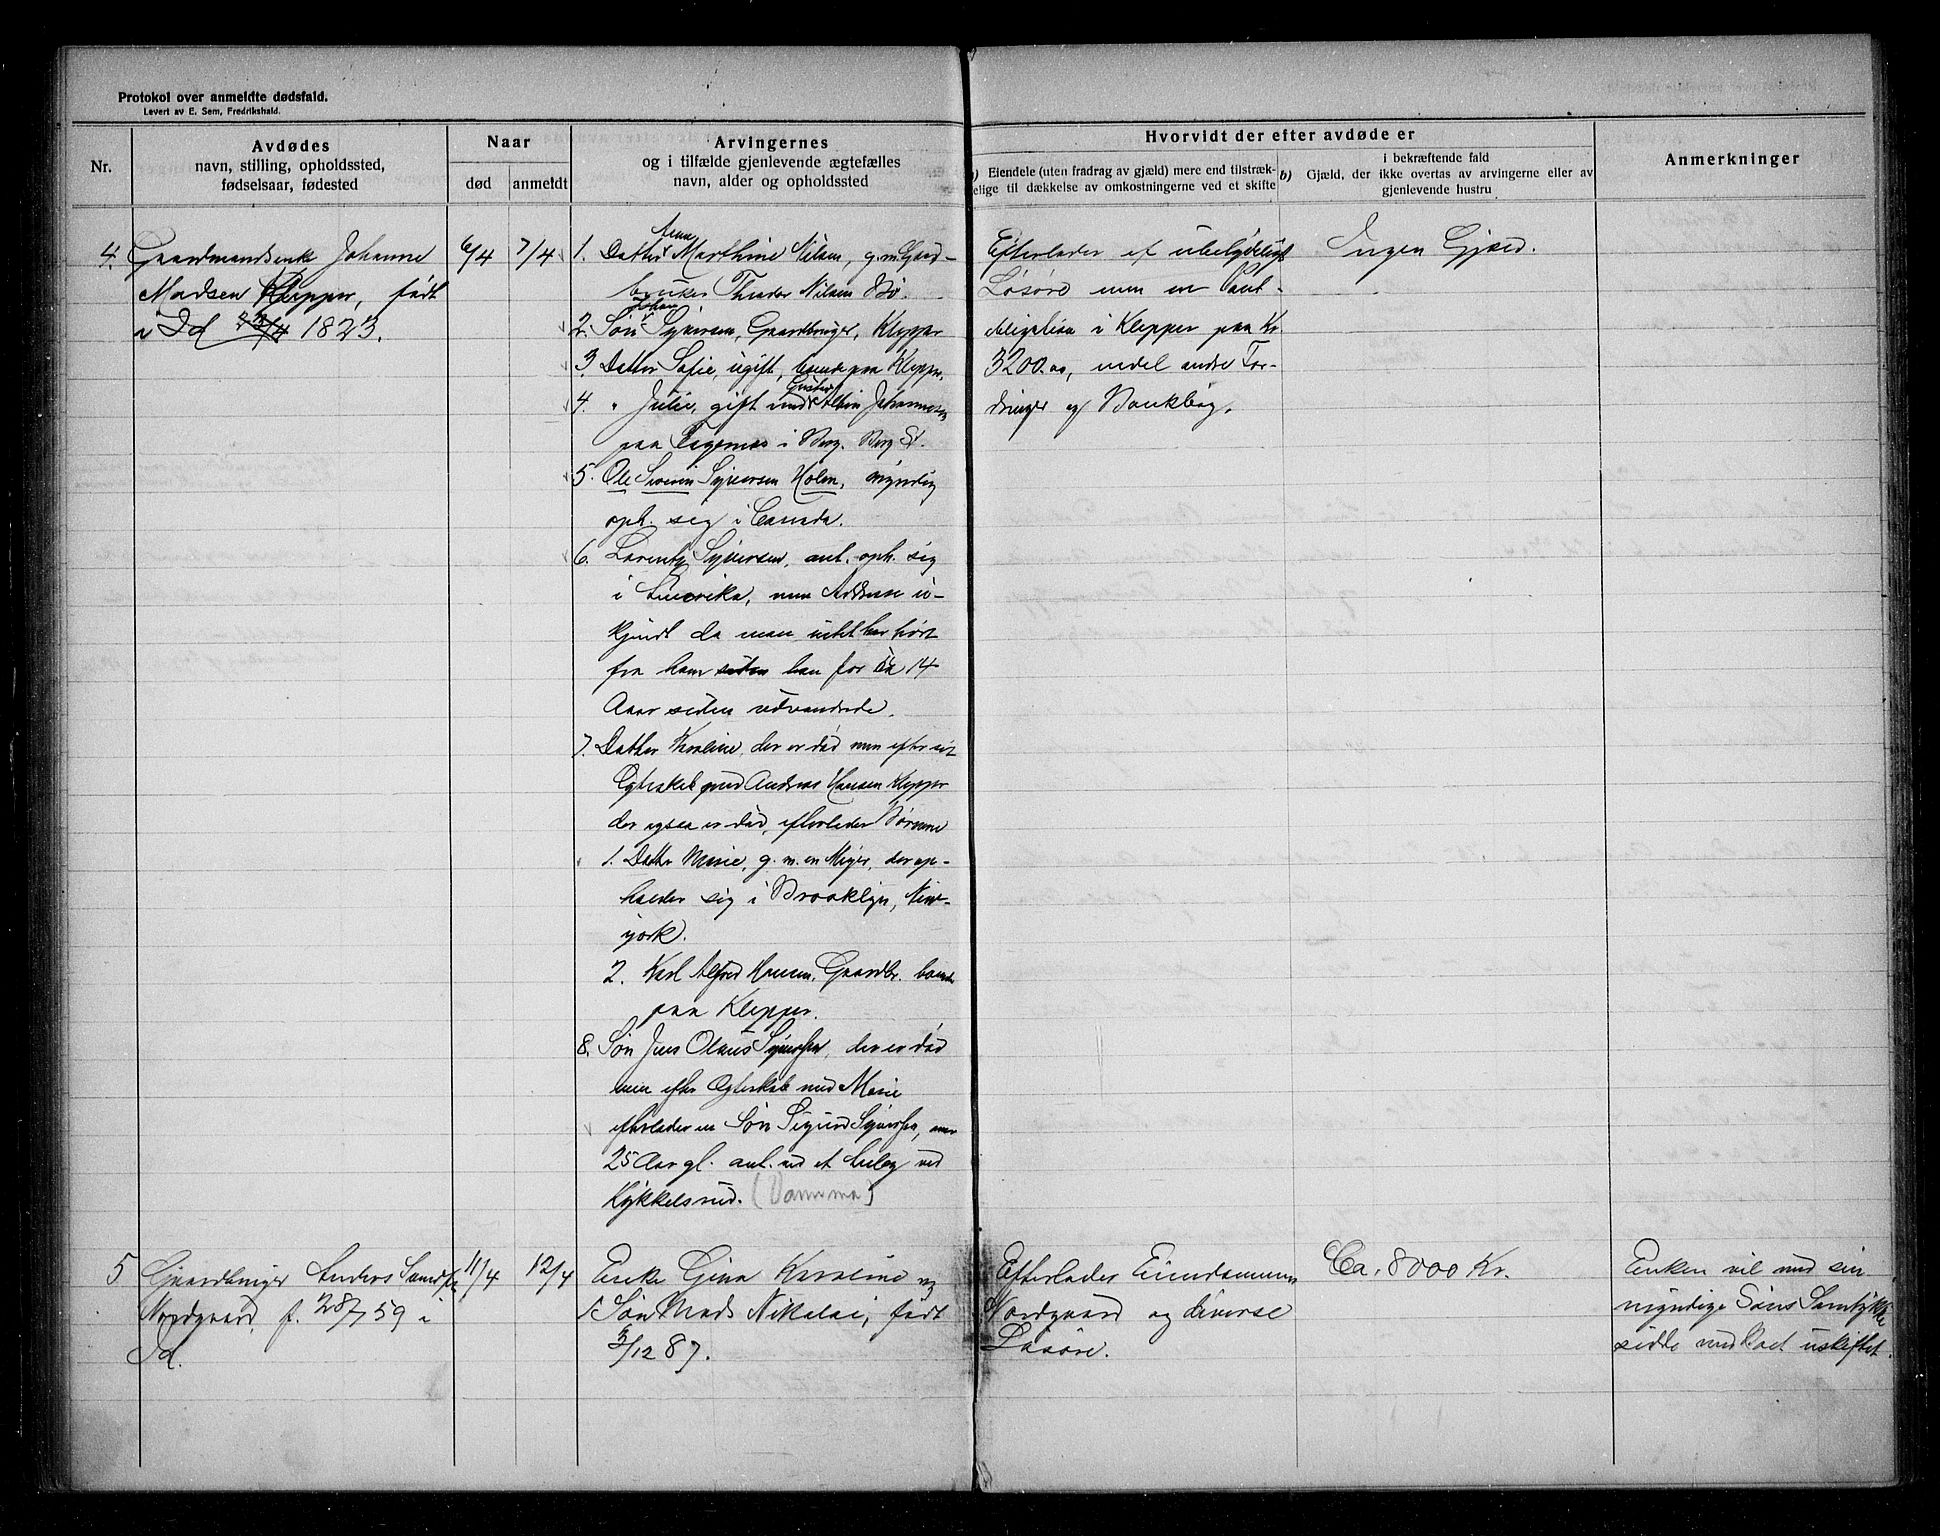 Protokol over anmeldte dødsfald.
Levert av E. Sem, Fredrikshald.
Nr.
Avdødes
navn, stilling, opholdssted,
fødselsaar, fødested
Naar
død
anmeldt
Arvingernes
og i tilfælde gjenlevende ægtefælles
navn, alder og opholdssted
Hvorvidt der efter avdøde er
a) Eiendele (uten fradrag av gjæld) mere end tilstræk-
kelige til dækkelse av omkostningerne ved et skifte
i bekræftende fald
b) Gjæld, der ikke overtas av arvingerne eller av
gjenlevende hustru
Anmerkninger
4.
Gaardmandsenke Johanne
Madsen Klepper, født
i Id 23/4 1823.
6/4
7/4
1. Datter Anna Marthine Nilsen, g.m. Gaard-
bruker Theodor Nilsen Bø.
2. Søn Johan Syversen, Gaardbruger, Klepper
3. Datter Sofie, ugift, boende paa Klepper.
4. " Julie, gift med Gustav Albin Johannesen
paa i Berg. Berg St.
5. Ole Severin Syversen Holm, myndig
oph. sig i Canada.
6. Lorentz Syversen, ant. oph. sig
i Amerika, men Addresse u-
kjendt da man intet har hørt
fra ham siden han for ca 14
Aar siden udvandrede.
7. Datter Karoline, der er død men efter sit
Egteskab med Andreas Hansen Klepper
der ogsaa er død, efterlader Børnene
1. Datter Marie, g. m. en Meyer, der op-
holder sig i Brooklyn, New-
york.
2. Karl Alfred Hansen, Gaardbr. boende
paa Klepper.
8. Søn Jens Olaus Syversen, der er død
men efter Egteskab med Marie
efterlader en Søn Sigurd Syversen,
25 Aar gl. ant. ved et Anlæg ved
Kykkelsrud. (Vamma)
Efterlader et ubetydeligt
Løsøre men en Pant-
obligation i Klepper paa Kr
3200.00, endel andre For-
dringer og Bankbog.
Ingen Gjæld.
5
Gaardbruger Anders
Nordgaard, f. 28/7 59 i
Id.
11/4
12/4
Enke Gina Karoline og
Søn Mads Nikolai, født
3/12 87.
Efterlader Eiendommen
Nordgaard og diverse
Løsøre.
Ca. 8000 Kr.
Enken vil med sin
myndige Søns Samtykke
sidde med Boet uskiftet.